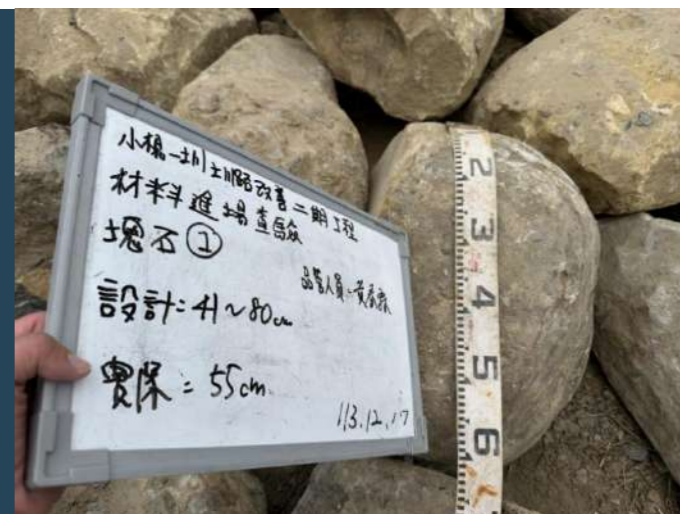 小橋一圳圳路改善二期工程
材料進場查驗
塊石①
品管人員:黃
設計:41~80cm
實際:55cm
113.12.17
2
3
4
5
6